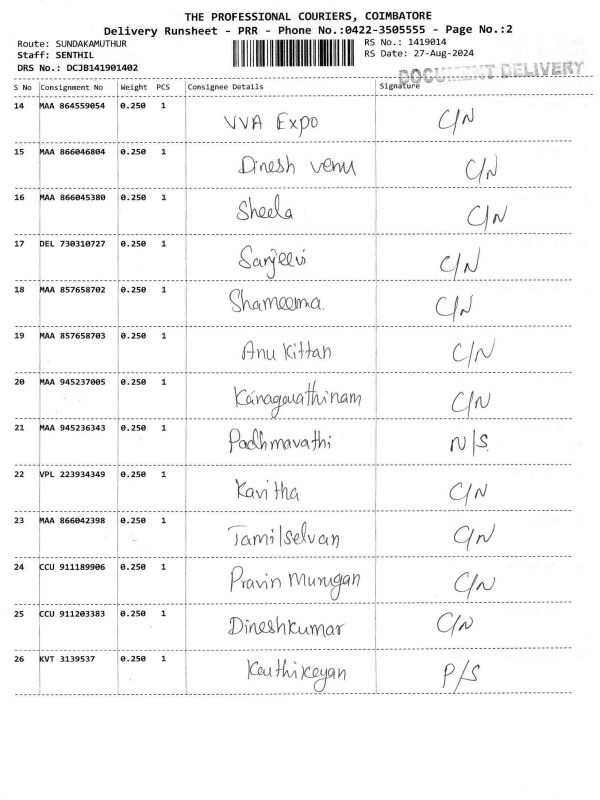 THE PROFESSIONAL COURIERS, COIMBATORE
Delivery Runsheet - PRR - Phone No.:0422-3505555 - Page No.:2
Route: SUNDAKAMUTHUR RS No.: 1419014
Staff: SENTHIL RS Date: 27-Aug-2024
DRS No.: DCJB141901402 DOCUMENT DELIVERY
S No Consignment No Weight PCS Consignee Details Signature
14 MAA 864559054 0.250 1 VVA Expo C/N
15 MAA 866046804 0.250 1 Dinesh venu C/N
16 MAA 866045380 0.250 1 Sheela C/N
17 DEL 730310727 0.250 1 Sanjeevi C/N
18 MAA 857658702 0.250 1 Shameema. C/N
19 MAA 857658703 0.250 1 Anu Kittan C/N
20 MAA 945237005 0.250 1 Kanagarathinam C/N
21 MAA 945236343 0.250 1 Padhmavathi N/S.
22 VPL 223934349 0.250 1 Kavitha C/N
23 MAA 866042398 0.250 1 Tamilselvan C/N
24 CCU 911189906 0.250 1 Pravin Murugan C/N
25 CCU 911203383 0.250 1 Dineshkumar C/N
26 KVT 3139537 0.250 1 Karthikeyan P/S